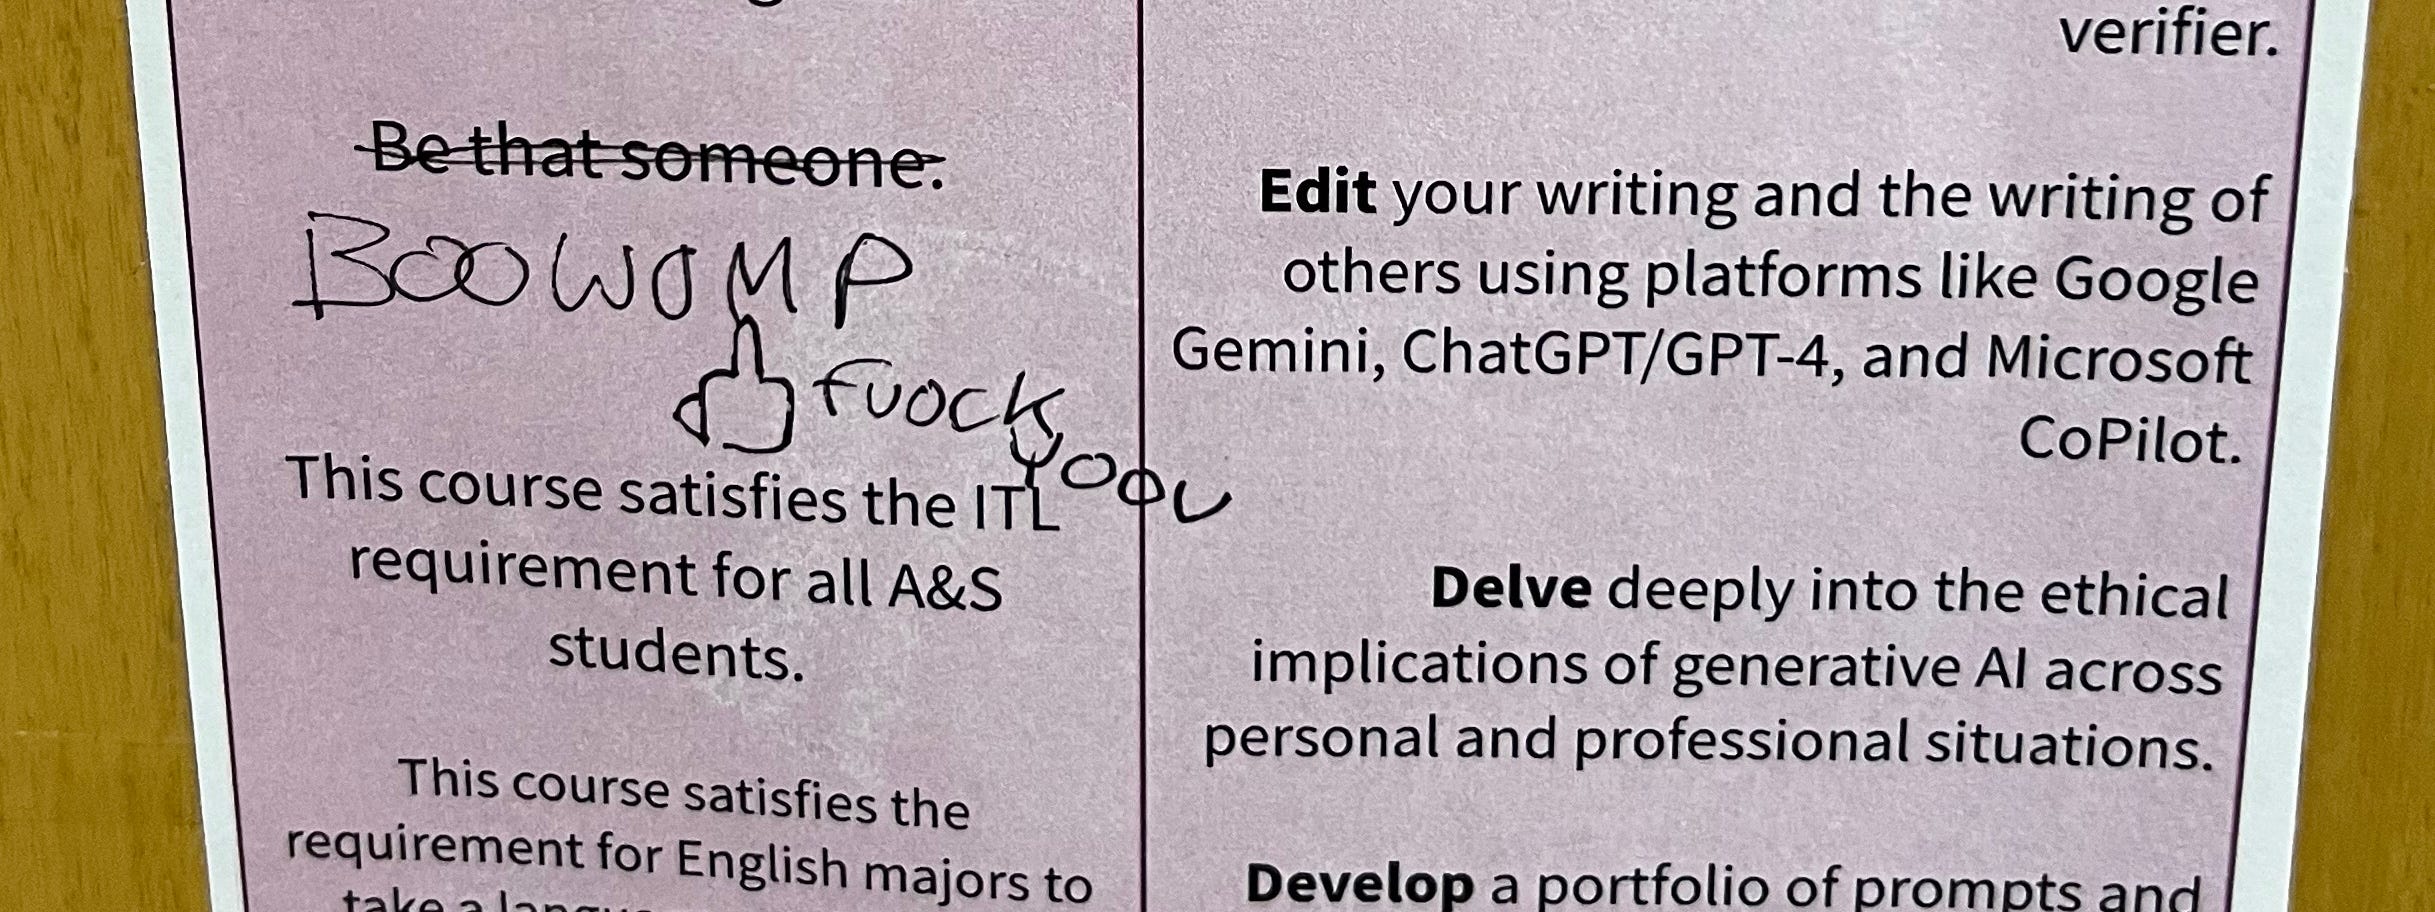 Be that someone.
BOOWOMP
fuock
yoou
This course satisfies the ITL
requirement for all A&S
students.
This course satisfies the
requirement for English majors to
take a
verifier.
Edit your writing and the writing of
others using platforms like Google
Gemini, ChatGPT/GPT-4, and Microsoft
CoPilot.
Delve deeply into the ethical
implications of generative AI across
personal and professional situations.
Develop a portfolio of prompts and